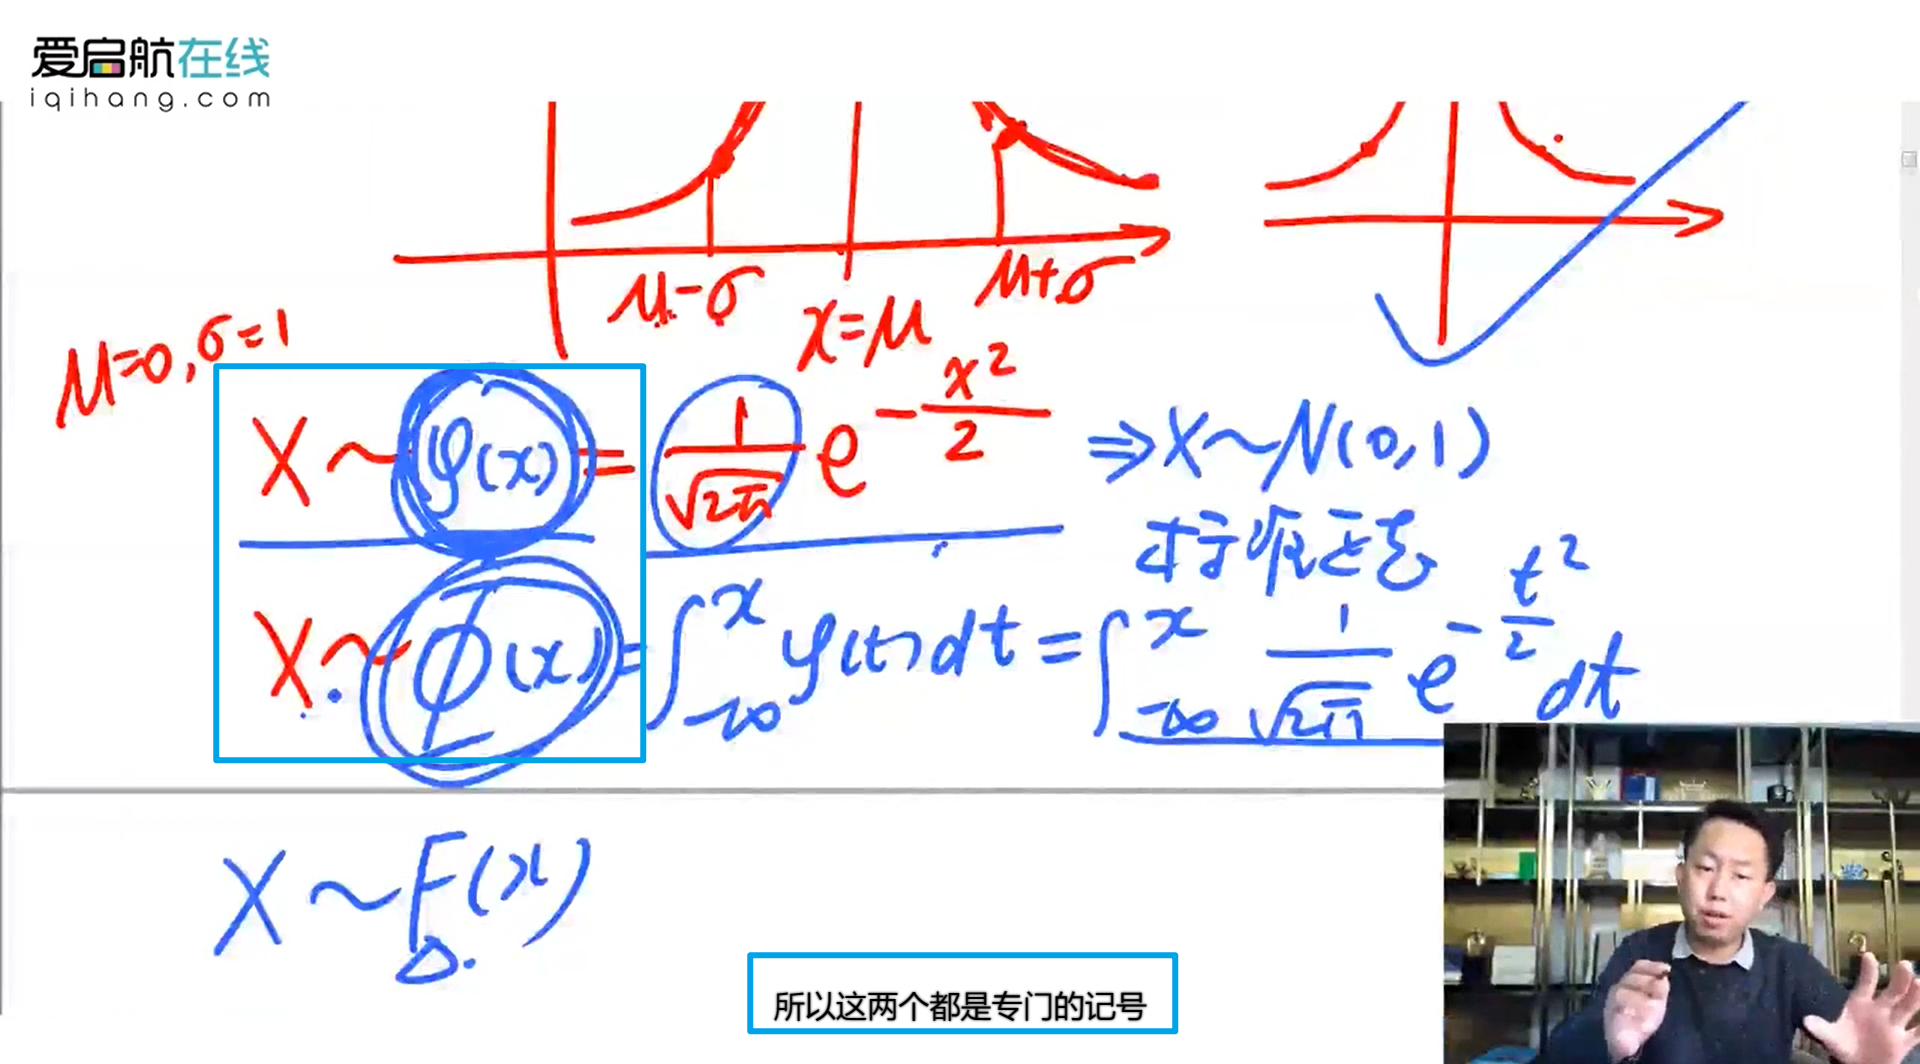 爱启航在线
iqihang.com
μ-σ
x=μ
μ+σ
μ=0,σ=1
X~φ(x)=1/√2π e^-x²/2 ⇒X~N(0,1)
标准正态
X~Φ(x)=∫_-∞^x φ(t)dt=∫_-∞^x 1/√2π e^-t²/2 dt
X~F(x)
所以这两个都是专门的记号